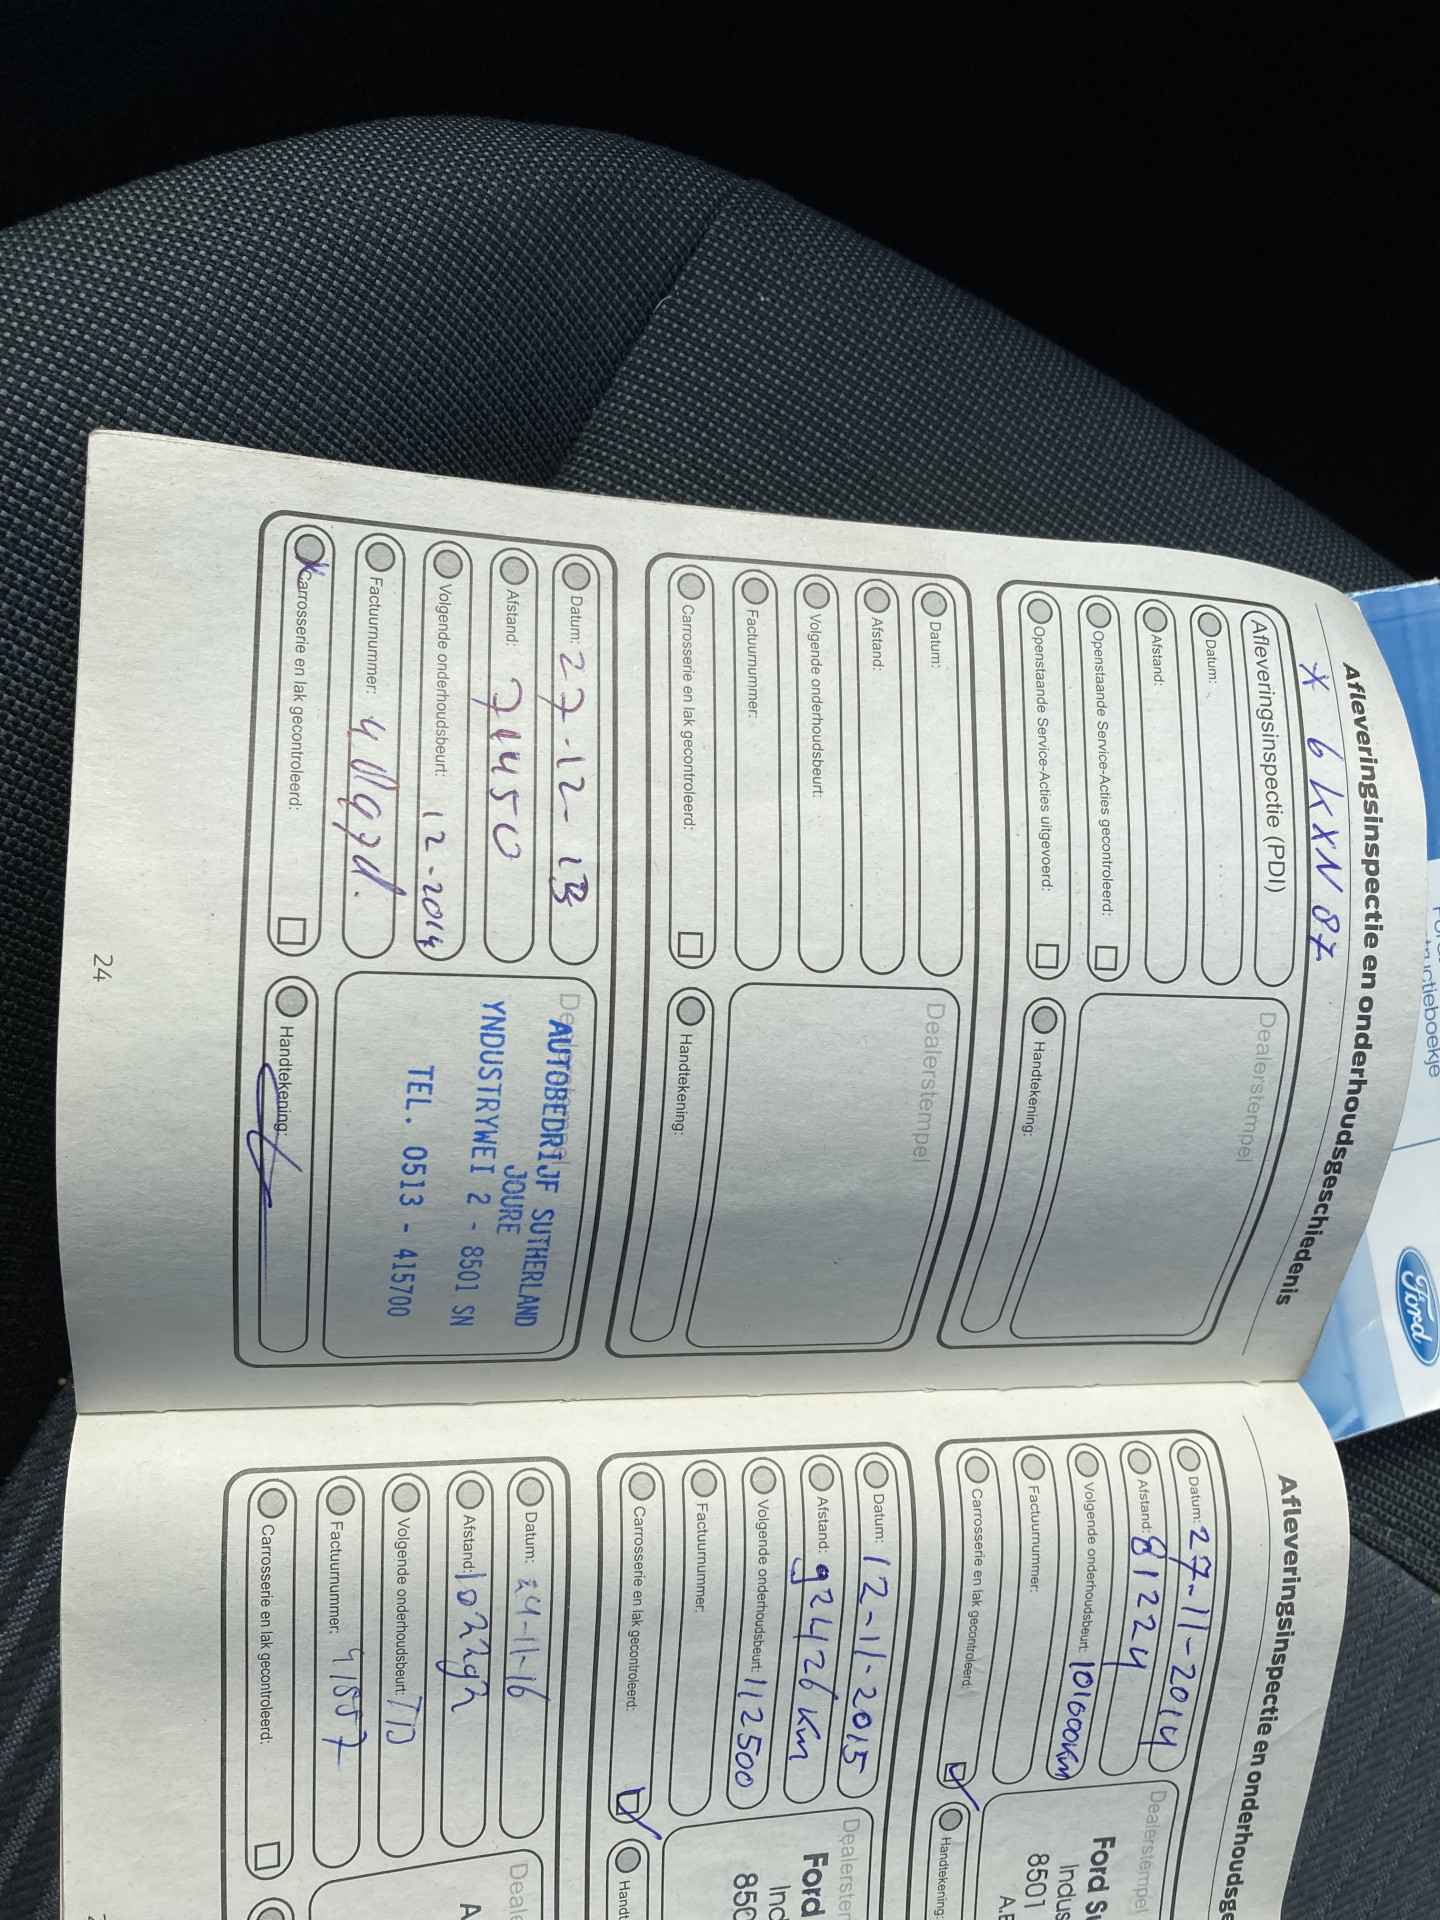 Afleveringsinspectie en onderhoudsgeschiedenis
* 6 KXN 87
Afleveringsinspectie (PDI)
Datum:
Afstand:
Openstaande Service-Acties gecontroleerd:
Openstaande Service-Acties uitgevoerd:
Dealerstempel
Handtekening:
Datum:
Afstand:
Volgende onderhoudsbeurt:
Factuurnummer:
Carrosserie en lak gecontroleerd:
Dealerstempel
Handtekening:
Datum: 27-12-13
Afstand: 71450
Volgende onderhoudsbeurt: 12-2014
Factuurnummer:
Carrosserie en lak gecontroleerd:
AUTOBEDRIJF SUTHERLAND
JOURE
YNDUSTRYWEI 2 - 8501 SN
TEL. 0513 - 415700
Handtekening:
24
Afleveringsinspectie en onderhoudsge
Datum: 27-11-2014
Afstand: 81224
Volgende onderhoudsbeurt: 101000km
Factuurnummer:
Carrosserie en lak gecontroleerd:
Dealerstempel
Ford Su
Indus
8501
Handtekening:
Datum: 12-11-2015
Afstand: 92426 Km
Volgende onderhoudsbeurt: 112500
Factuurnummer:
Carrosserie en lak gecontroleerd:
Dealerster
Ford
Ind
850
Handt
Datum: 24-11-16
Afstand:
Volgende onderhoudsbeurt:
Factuurnummer: 41557
Carrosserie en lak gecontroleerd:
Deale
A
uctieboekje
Ford